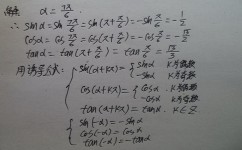 解 α = 7π/6
∴ sinα = sin 7π/6 = sin(π+π/6) = -sin π/6 = -1/2
cosα = cos 7π/6 = cos(π+π/6) = -cos π/6 = -√3/2
tanα = tan(π+π/6) = tan π/6 = √3/3
用诱导公式: sin(α+kπ) = { sinα K为偶数
-sinα K为奇数
cos(α+kπ) = { cosα K为偶数
-cosα K为奇数
tan(α+kπ) = tanα K∈Z
{ sin(-α) = -sinα
cos(-α) = cosα
tan(-α) = -tanα